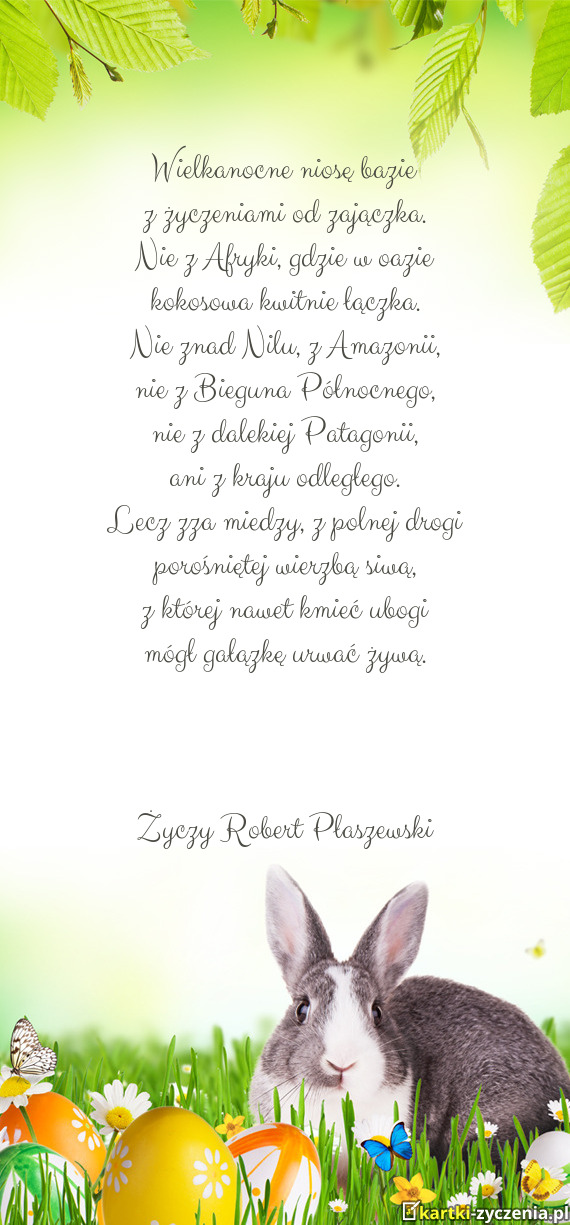 Wielkanocne niosę bazie
z życzeniami od zajączka.
Nie z Afryki, gdzie w oazie
kokosowa kwitnie łączka.
Nie znad Nilu, z Amazonii,
nie z Bieguna Północnego,
nie z dalekiej Patagonii,
ani z kraju odległego.
Lecz zza miedzy, z polnej drogi
porośniętej wierzbą siwą,
z której nawet kmieć ubogi
mógł gałązkę urwać żywą.
Życzy Robert Płaszewski
kartki-zyczenia.pl